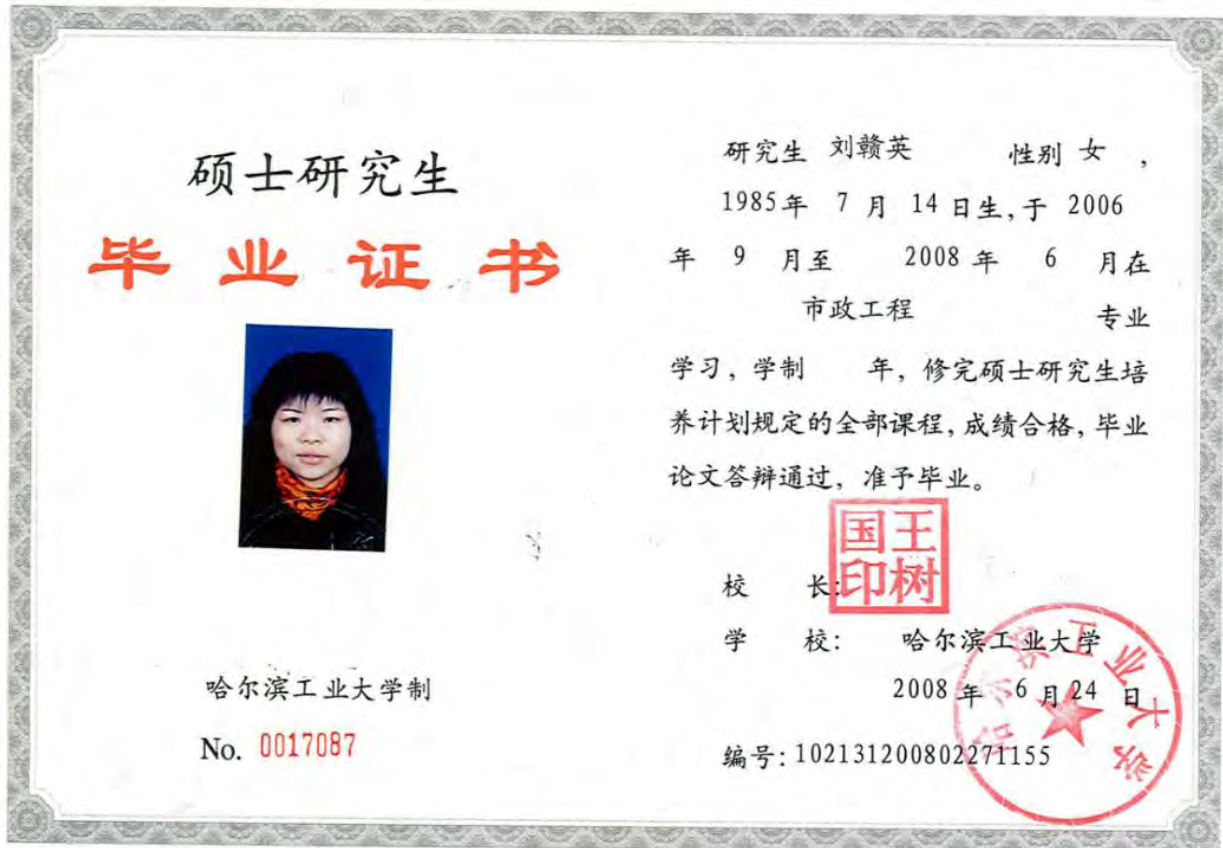 硕士研究生
毕业证书
哈尔滨工业大学制
No. 0017087
研究生 刘赣英 性别 女 ,
1985年 7 月 14 日生,于 2006
年 9 月至 2008 年 6 月在
市政工程 专业
学习, 学制 年, 修完硕士研究生培
养计划规定的全部课程, 成绩合格, 毕业
论文答辩通过, 准予毕业。
国王
印树
校 长:
学 校: 哈尔滨工业大学
2008 年 6 月 24 日
编号: 102131200802271155
哈尔滨工业大学